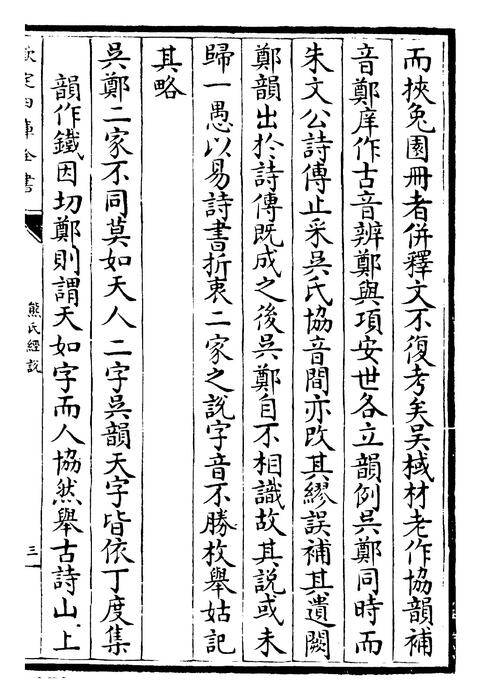 而挾兔園冊者併釋文不復考矣吳棫材老作協韻補
音鄭庠作古音辨鄭與項安世各立韻例吳鄭同時而
朱文公詩傳止采吳氏協音間亦改其繆誤補其遺闕
鄭韻出於詩傳既成之後吳鄭自不相識故其說或未
歸一愚以易詩書折衷二家之說字音不勝枚舉姑記
其略
吳鄭二家不同莫如天人二字吳韻天字皆依丁度集
韻作鐵因切鄭則謂天如字而人協然舉古詩山上
欽定四庫全書
熊氏經說
三